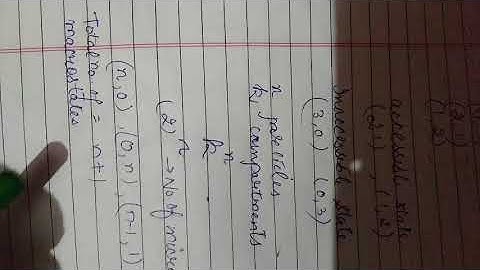 (2,1)
(1,2)
accessible state
(2,1) (1,2)
Inaccessible state
(3,0) (0,3)
n particles
k, compartments
kⁿ
(2)ⁿ → No of micro
(n,0), (0,n), (n-1, 1)
Total no of = n+1
macrostates